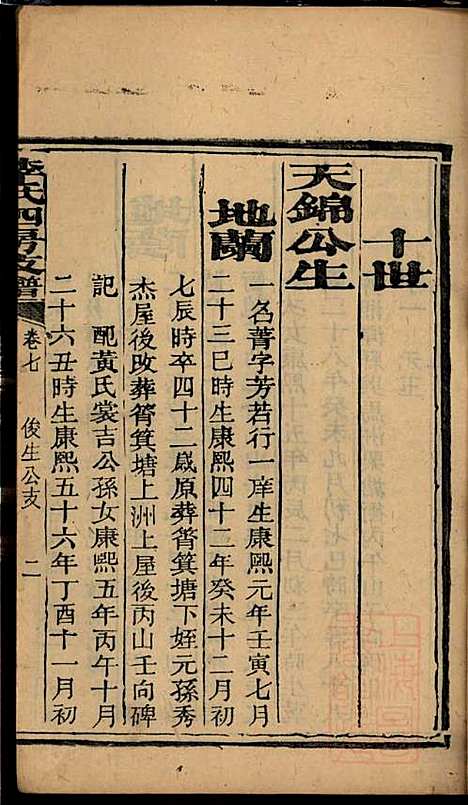 十世
天錦公生
地蘭
一名菁字芳若行一庠生康熙元年壬寅七月
二十三巳時生康熙四十二年癸未十二月初
七辰時卒四十二歲原葬筲箕塘下姪元孫秀
杰屋後改葬筲箕塘上洲上屋後丙山壬向碑
記 配黃氏裳吉公孫女康熙五年丙午十月
二十六丑時生康熙五十六年丁酉十一月初
氏四房支譜
卷七
俊生公支
二